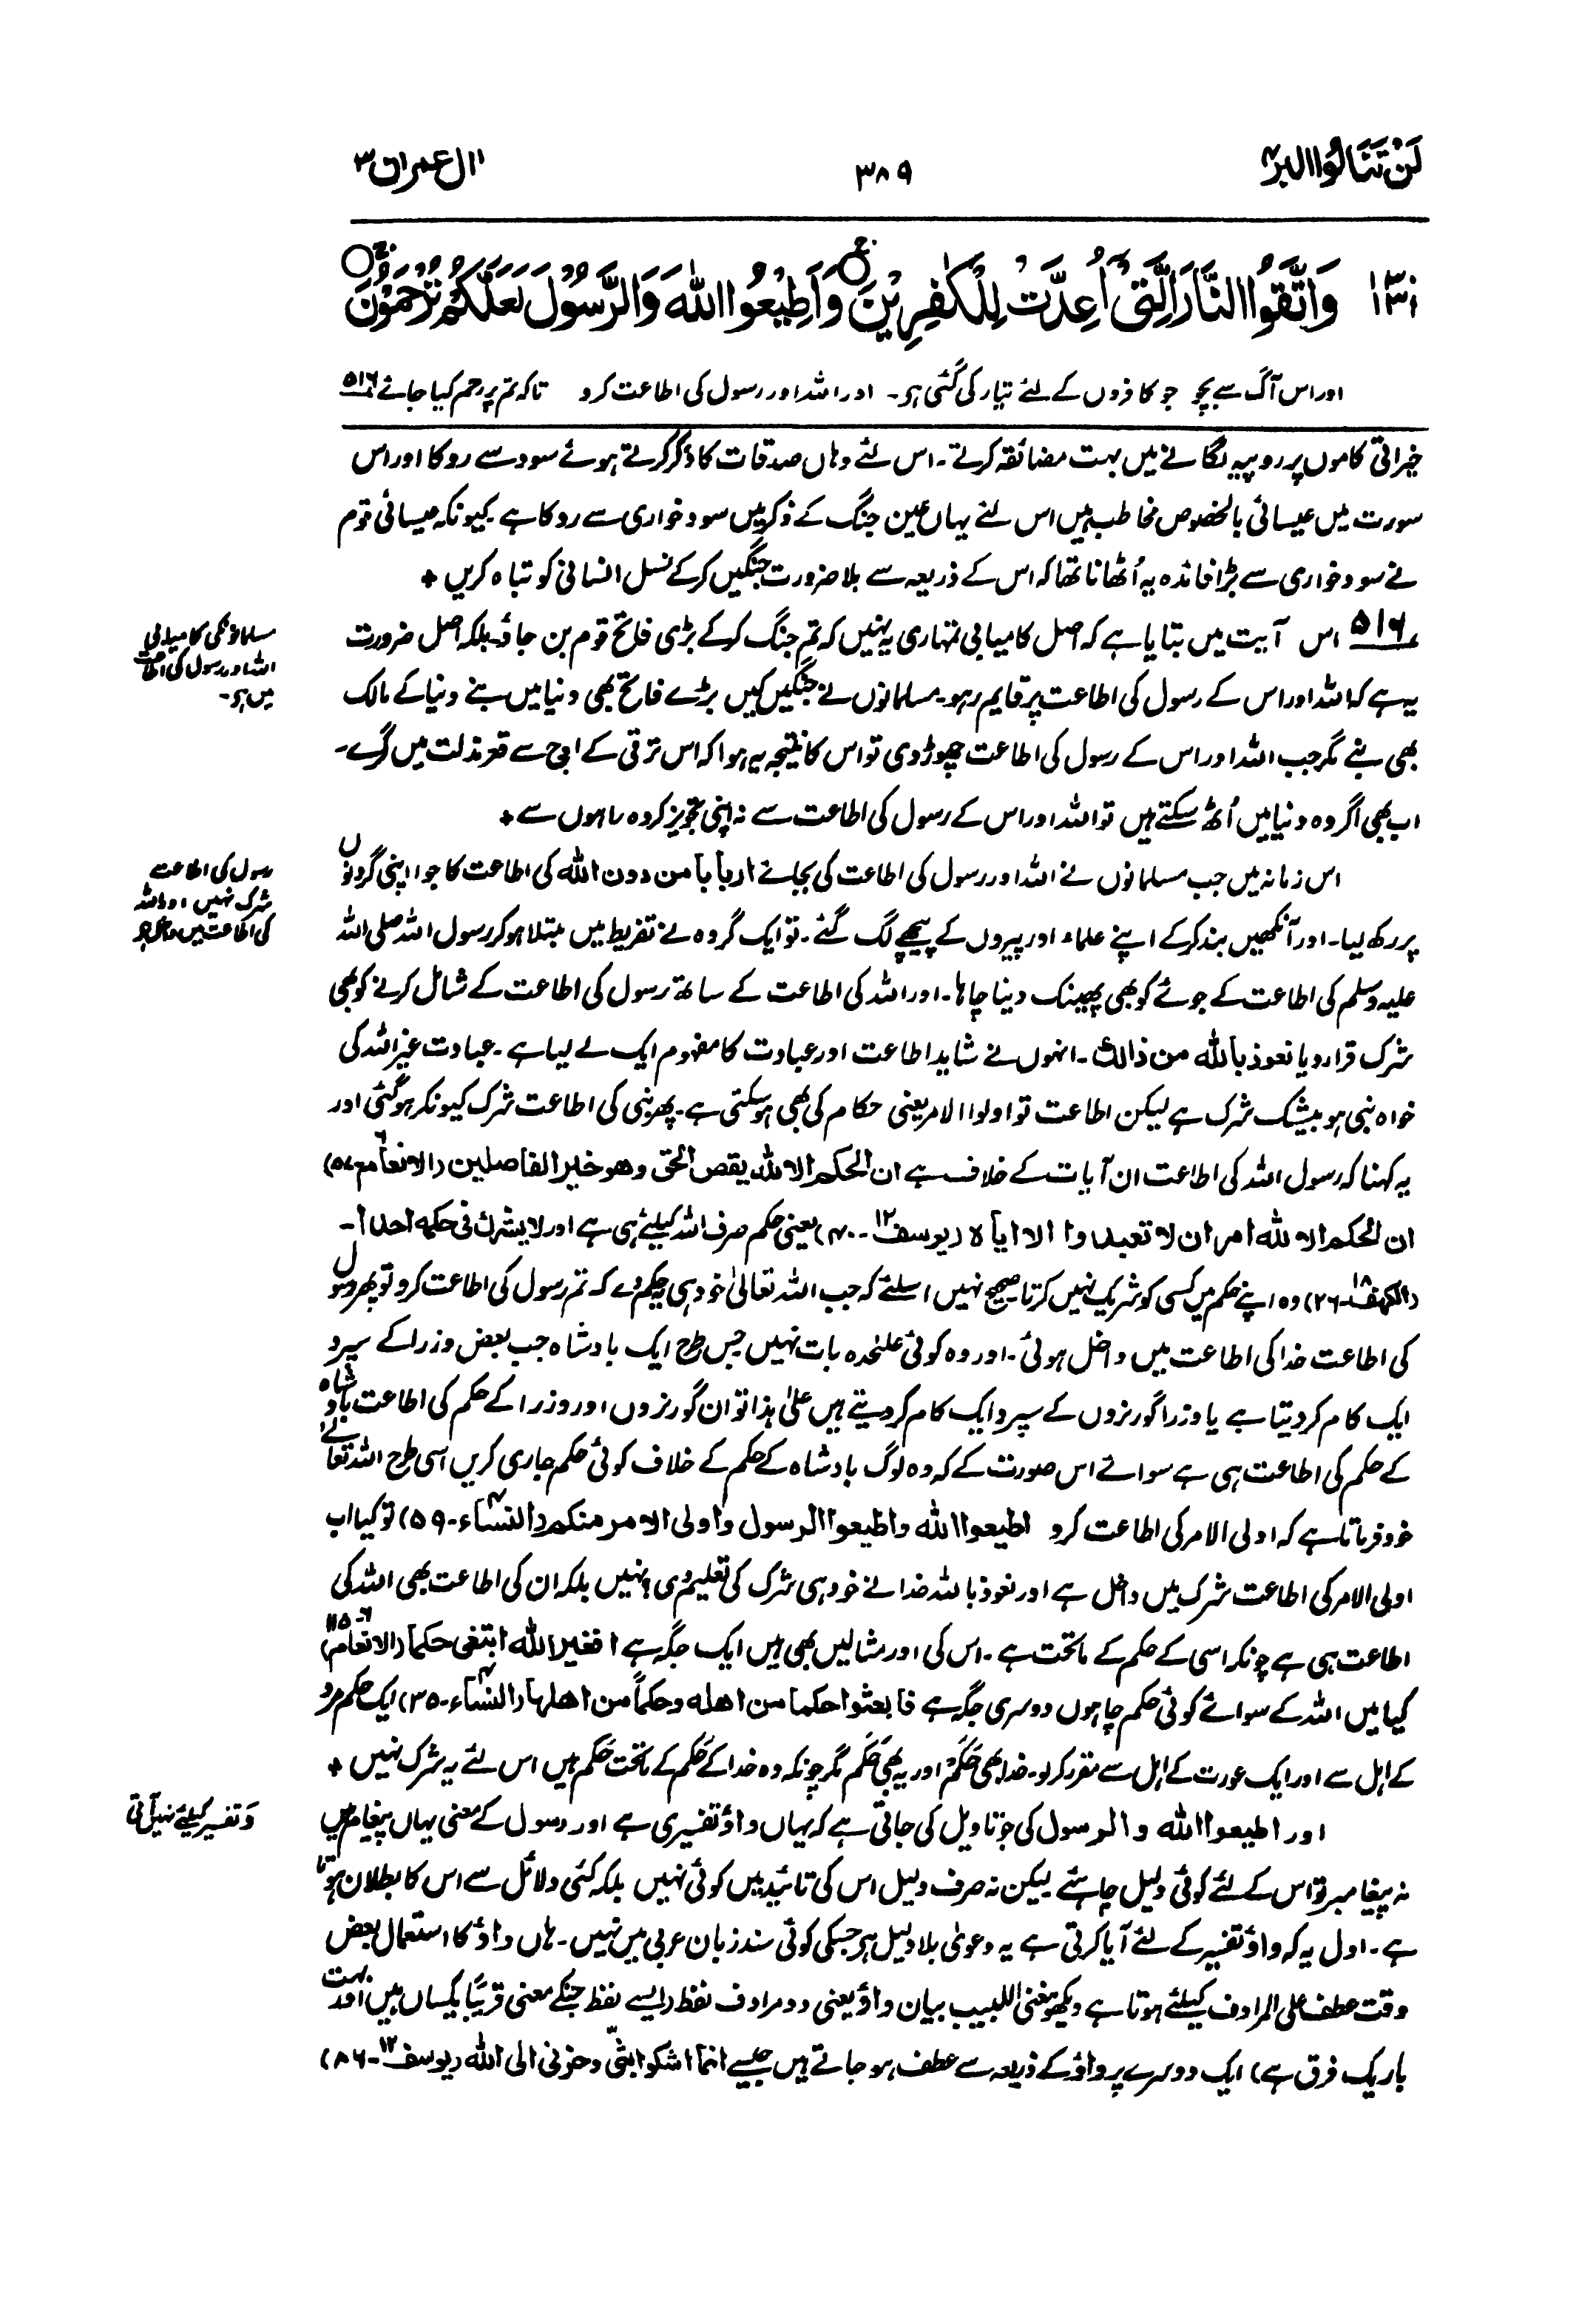 لَنْ تَنَالُوا الْبِرَّ ۴
۳۸۹
اٰل عمرٰن ۳
۱۳۱ وَاتَّقُوا النَّارَ الَّتِیْۤ اُعِدَّتْ لِلْكٰفِرِیْنَ ۚ وَاَطِیْعُوا اللّٰهَ وَالرَّسُوْلَ لَعَلَّكُمْ تُرْحَمُوْنَ ۚ
اور اس آگ سے بچو جو کافروں کے لئے تیار کی گئی ہو۔ اور اللہ اور رسول کی اطاعت کرو تاکہ تم پر رحم کیا جائے ۵۱۶
خیراتی کاموں پر روپیہ لگانے میں بہت مضائقہ کرتے۔ اس لئے وہاں صدقات کا ذکر کرتے ہوئے سود سے روکا اور اس
سورت میں عیسائی بالخصوص مخاطب ہیں اس لئے یہاں عین جنگ کے ذکر میں سود خواری سے روکا ہے۔ کیونکہ عیسائی قوم
نے سود خواری سے بڑا فائدہ یہ اُٹھانا تھا کہ اس کے ذریعہ سے بلا ضرورت جنگیں کرکے نسل انسانی کو تباہ کریں +
۵۱۶ اس آیت میں بتایا ہے کہ اصل کامیابی تمہاری یہ نہیں کہ تم جنگ کرکے بڑی فاتح قوم بن جاؤ۔ بلکہ اصل ضرورت
مسلمانونکی کامیابی
اللہ اور رسول کی اطاعت
میں ہو۔
یہ ہے کہ اللہ اور اس کے رسول کی اطاعت پر قایم رہو۔ مسلمانوں نے جنگیں کیں بڑے فاتح بھی دنیا میں بنے دنیا کے مالک
بھی بنے مگر جب اللہ اور اس کے رسول کی اطاعت چھوڑ دی تو اس کا نتیجہ یہ ہوا کہ اس ترقی کے اوج سے قعر مذلت میں گرے۔
اب بھی اگر وہ دنیا میں اُٹھ سکتے ہیں تو اللہ اور اس کے رسول کی اطاعت سے نہ اپنی تجویز کردہ راہوں سے +
اس زمانہ میں جب مسلمانوں نے اللہ اور رسول کی اطاعت کی بجائے اربابا من دون اللہ کی اطاعت کا جوا اپنی گردنوں
رسول کی اطاعت سے
شرک نہیں اور اللہ
کی اطاعت میں داخل ہو
پر رکھ لیا۔ اور آنکھیں بند کرکے اپنے علماء اور پیروں کے پیچھے لگ گئے۔ تو ایک گروہ نے تفریط میں مبتلا ہو کر رسول اللہ صلی اللہ
علیہ وسلم کی اطاعت کے جوئے کو بھی پھینک دینا چاہا۔ اور اللہ کی اطاعت کے ساتھ رسول کی اطاعت کے شامل کرنے کو بھی
شرک قرار دیا نعوذ باللہ من ذالک۔ انہوں نے شاید اطاعت اور عبادت کا مفہوم ایک لے لیا ہے۔ عبادت غیر اللہ کی
خواہ نبی ہو بیشک شرک ہے لیکن اطاعت تو اولوا الامر یعنی حکام کی بھی ہو سکتی ہے۔ پھر نبی کی اطاعت شرک کیونکر ہو گئی اور
یہ کہنا کہ رسول اللہ کی اطاعت ان آیات کے خلاف ہے ان الحکم الا للہ یقص الحق وھو خیر الفاصلین (الانعام ۶ـ۵۷)
ان الحکم الا للہ امر ان لا تعبدوا الا ایاہ (یوسف ۱۲ـ۴۰) یعنی حکم صرف اللہ کیلئے ہی ہے اور لا یشرک فی حکمہ احدا۔
(الکہف ۱۸ـ۲۶) وہ اپنے حکم میں کسی کو شریک نہیں کرتا صحیح نہیں اسلئے کہ جب اللہ تعالیٰ خود ہی یہ حکم دے کہ تم رسول کی اطاعت کرو تو پھر رسول
کی اطاعت خدا کی اطاعت میں داخل ہوئی۔ اور وہ کوئی علیٰحدہ بات نہیں جس طرح ایک بادشاہ جب بعض وزرا کے سپرد
ایک کام کر دیتا ہے یا وزرا گورنروں کے سپرد ایک کام کر دیتے ہیں علیٰ ہذا تو ان گورنروں اور وزرا کے حکم کی اطاعت بادشاہ
کے حکم کی اطاعت ہی ہے سوائے اس صورت کے کہ وہ لوگ بادشاہ کے حکم کے خلاف کوئی حکم جاری کریں اسی طرح اللہ تعالےٰ
خود فرماتا ہے کہ اولی الامر کی اطاعت کرو اطیعوا اللہ واطیعوا الرسول واولی الامر منکم (النساء ۴ـ۵۹) تو کیا اب
اولی الامر کی اطاعت شرک میں داخل ہے اور نعوذ باللہ خدا نے خود ہی شرک کی تعلیم دی؟ نہیں بلکہ ان کی اطاعت بھی اللہ کی
اطاعت ہی ہے چونکہ اسی کے حکم کے ماتحت ہے۔ اس کی اور مثالیں بھی ہیں ایک جگہ ہے افغیر اللہ ابتغی حکما (الانعام ۶ـ۱۱۵)
کیا میں اللہ کے سوائے کوئی حکم چاہوں دوسری جگہ ہے فابعثوا حکما من اھلہ وحکماً من اھلہا (النساء ۴ـ۳۵) ایک حکم مرد
کے اہل سے اور ایک عورت کے اہل سے مقرر کر لو۔ خدا بھی حَکَمْ اور یہ بھی حَکَم مگر چونکہ وہ خدا کے حَکم کے ماتحت حَکم ہیں اس لئے یہ شرک نہیں +
اور اطیعوا اللہ والرسول کی جو تاویل کی جاتی ہے کہ یہاں واؤ تفسیری ہے اور رسول کے معنی یہاں پیغام ہیں
وَ تفسیر کیلئے نہیں آتی
نہ پیغامبر تو اس کے لئے کوئی دلیل چاہئے لیکن نہ صرف دلیل اس کی تائید میں کوئی نہیں بلکہ کئی دلائل سے اس کا بطلان ہوتا
ہے۔ اول یہ کہ واؤ تفسیر کے لئے آیا کرتی ہے یہ دعویٰ بلا دلیل ہر جسکی کوئی سند زبان عربی میں نہیں۔ ہاں واؤ کا استعمال بعض
وقت عطف علی المرادف کیلئے ہوتا ہے دیکھو مغنی اللبیب بیان واؤ یعنی دو مرادف لفظ (ایسے لفظ جنکے معنی قریباً یکساں ہیں اور بہت
باریک فرق ہے) ایک دوسرے پر واؤ کے ذریعہ سے عطف ہو جاتے ہیں جیسے انما اشکوا بثّی وحزنی الی اللہ (یوسف ۱۲ـ۸۶)